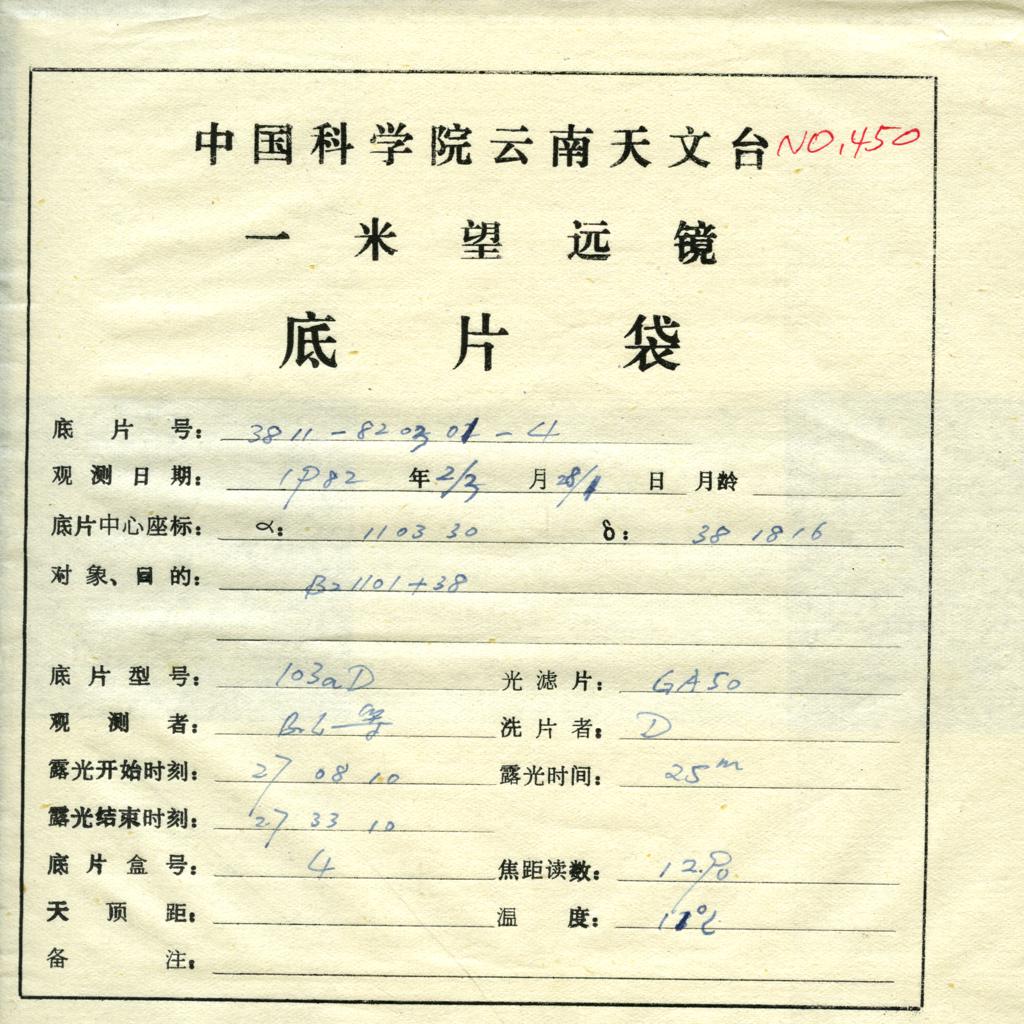 中国科学院云南天文台 NO.450
一米望远镜
底片袋
底片号: 3811-820301-4
观测日期: 1982 年 2/3 月 28/1 日 月龄
底片中心座标: α: 11 03 30 δ: 38 18 16
对象、目的: B2 1101+38
底片型号: 103aD 光滤片: GA50
观测者: 洗片者: D
露光开始时刻: 27 08 10 露光时间: 25m
露光结束时刻: 27 33 10
底片盒号: 4 焦距读数: 12.90
天顶距: 温度: 11℃
备注: